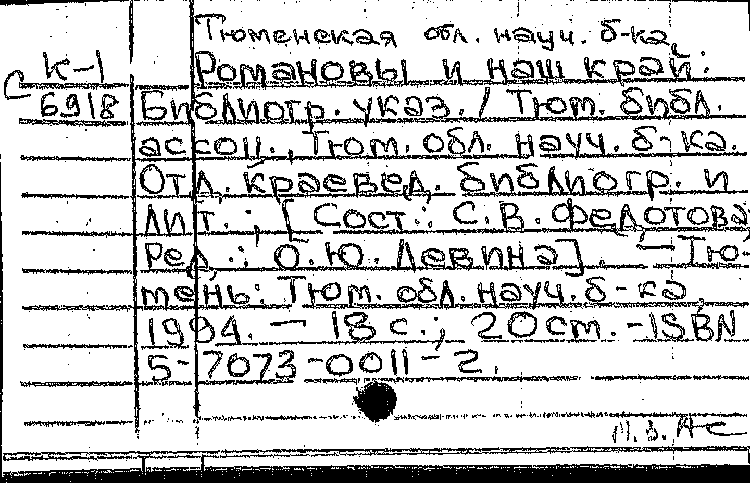 Тюменская обл. науч. б-ка,
К-1
Романовы и наш край:
С
6918
Библиогр. указ. / Тюм. библ.
ассоц., Тюм. обл. науч. б-ка.
Отд. краевед. библиогр. и
лит.; [Сост.: С.В. Федотова
Ред.: О.Ю. Левина]. — Тю-
мень: Тюм. обл. науч. б-ка,
1994. — 18 с.; 20 cm. - ISBN
5-7073-0011-2.